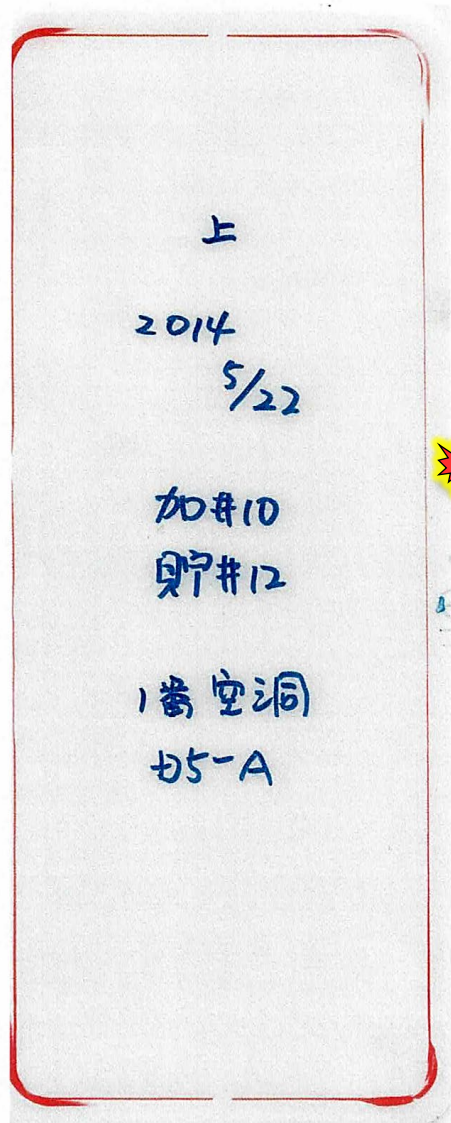 上
2014
5/22
加#10
貯#12
1番空洞
切5-A